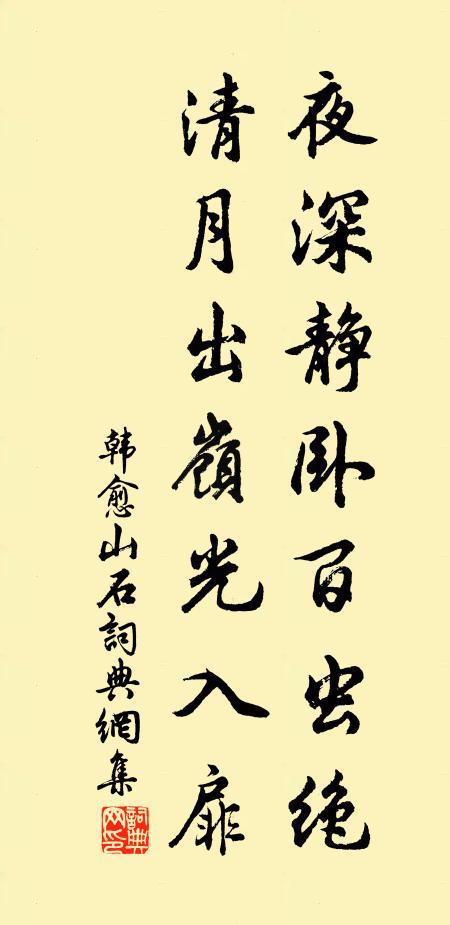 夜深静卧百虫绝
清月出嶺光入扉
韩愈山石詞典網集
詞典网印